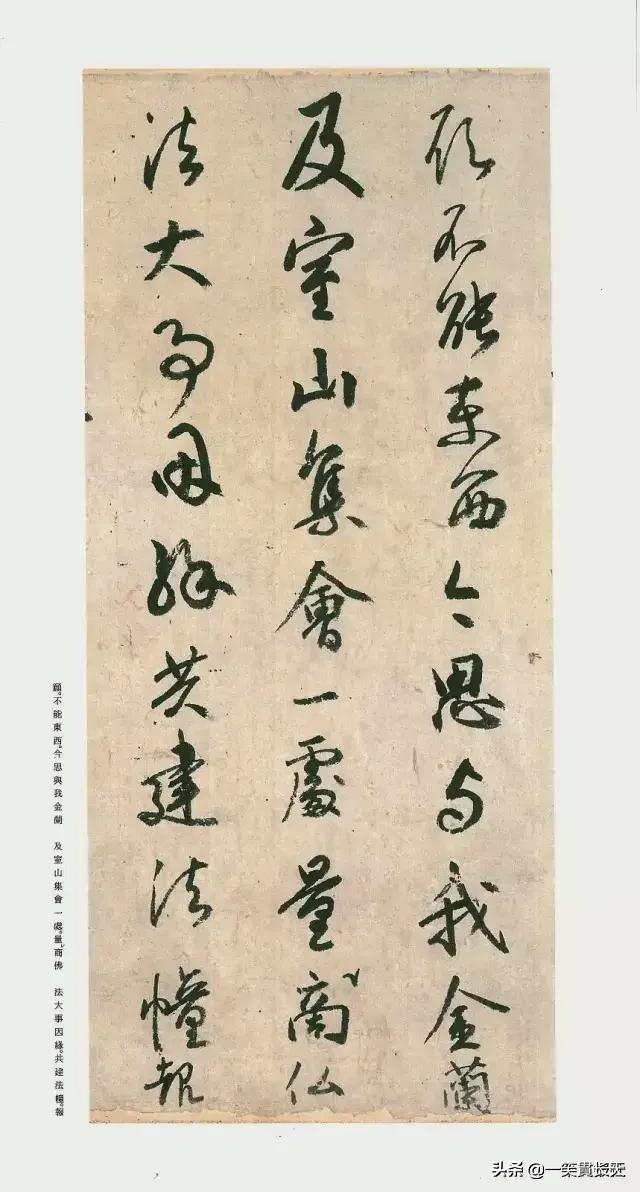 願不能東西今思与我金蘭
及室山集會一處量商仏
法大事因縁共建法幢報
願。不能東西。今思與我金蘭　及室山集會一處。量、商佛　法大事因緣。共建法幢。報
头条 @一笑